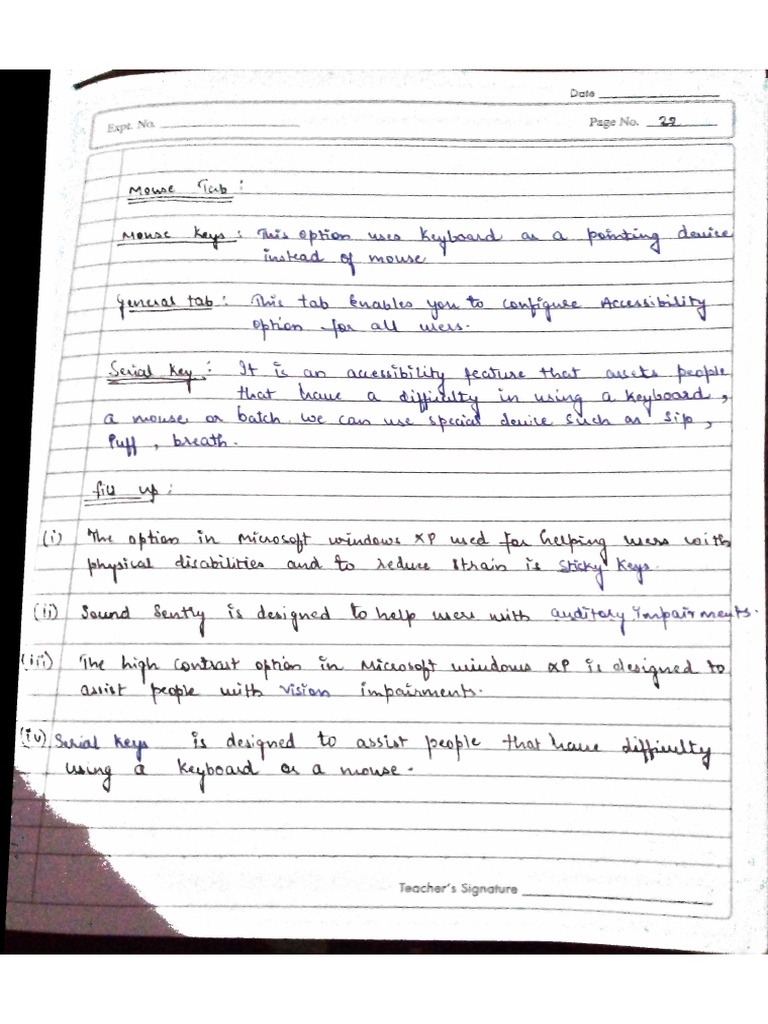 Date
Expt. No. Page No. 22
Mouse Tab :
Mouse Keys : This option uses keyboard as a pointing device
instead of mouse
General tab : This tab Enables you to configure Accessibility
option for all users.
Serial Key : It is an accessibility feature that assets people
that have a difficulty in using a keyboard,
a mouse or batch. we can use special device such as sip,
Puff, breath.
fill up :
(i) The option in Microsoft windows XP used for helping users with
physical disabilities and to reduce strain is Sticky Keys.
(ii) Sound Sently is designed to help users with auditory impairments.
(iii) The high contrast option in Microsoft windows XP is designed to
assist people with vision impairments.
(iv) Serial Keys is designed to assist people that have difficulty
using a keyboard or a mouse.
Teacher's Signature